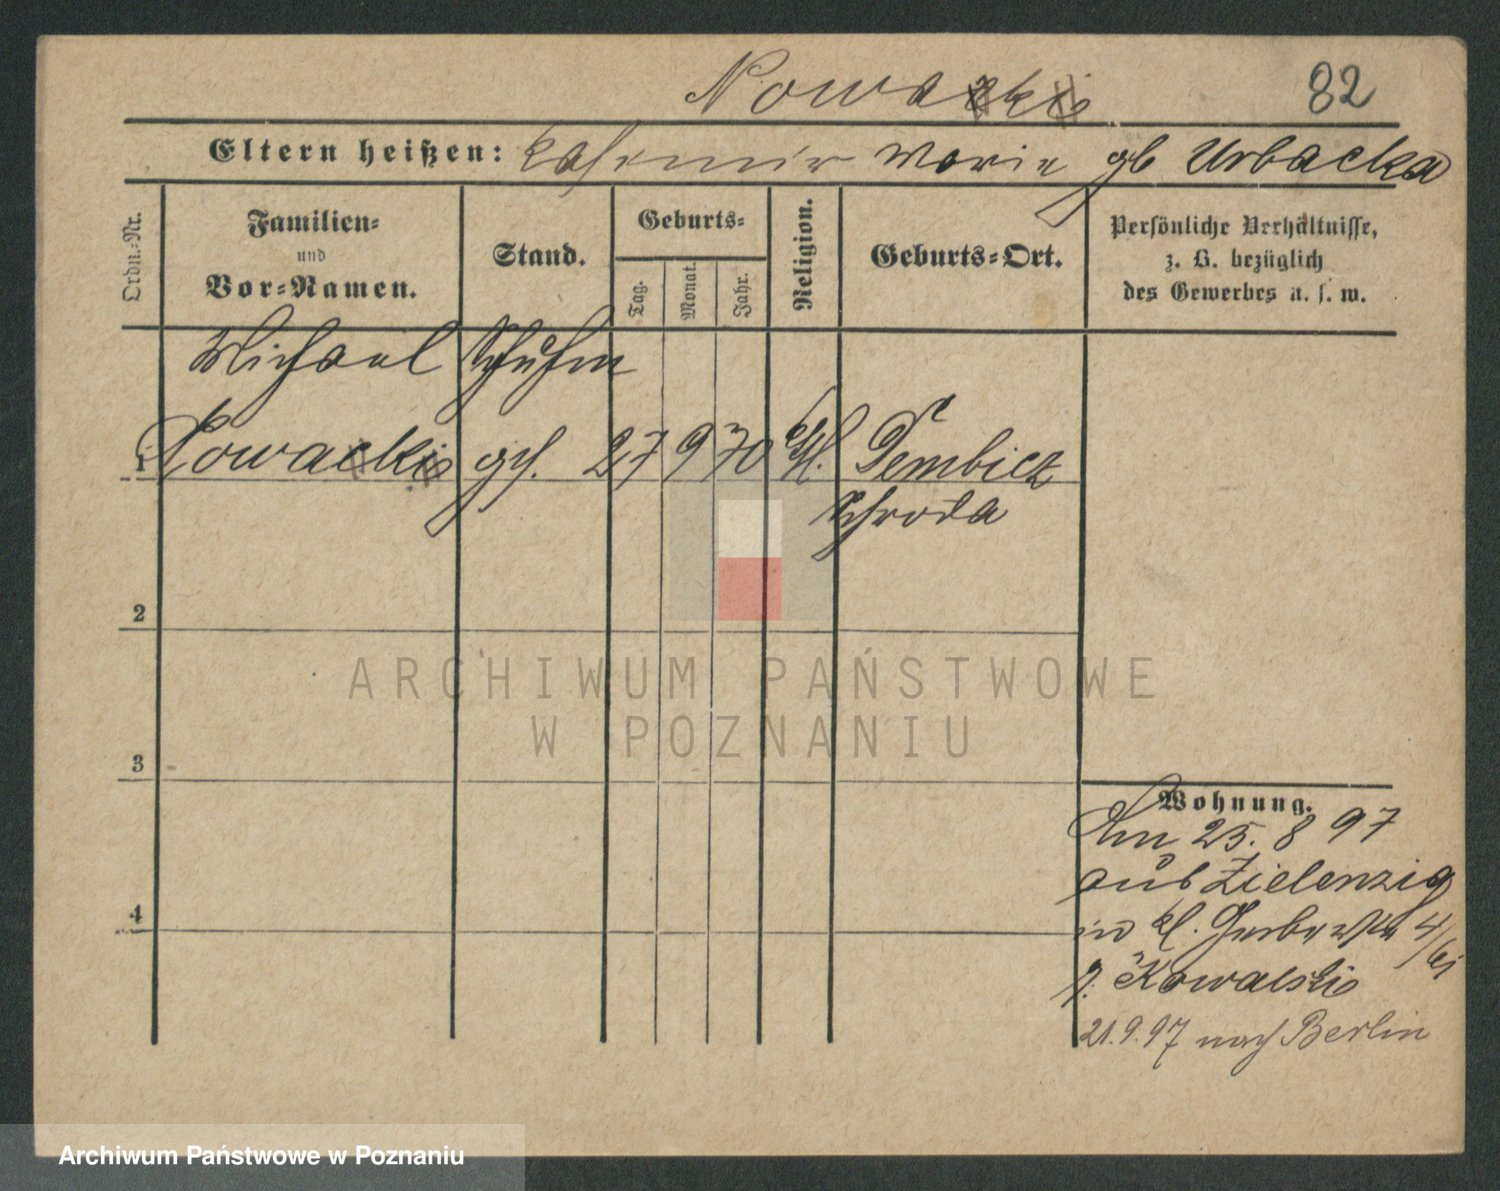 Nowacki 82
Eltern heißen: Kasimir Marie gb Urbacka
Ordn.-Nr.
Familien-
und
Vor-Namen.
Stand.
Geburts-
Tag.
Monat.
Jahr.
Religion.
Geburts-Ort.
Persönliche Verhältnisse,
z. B. bezüglich
des Gewerbes u. s. w.
Michael Schuhm
1 Nowacki gs. 27 9 70 kl. Dembicz
Schroda
2
3
4
Wohnung.
Am 25. 8 97
aus Zielenzig
in kl. Gerberstr 4/6
Kowalski
21.9.97 nach Berlin
ARCHIWUM PAŃSTWOWE
W POZNANIU
Archiwum Państwowe w Poznaniu